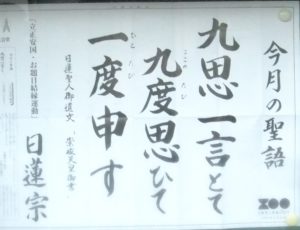 今月の聖語
九思一言とて
九度思ひて
ここの たび
一度申す
ひと たび
日蓮聖人御遺文
『崇峻天皇御書』
「立正安国・お題目結縁運動」
日蓮宗